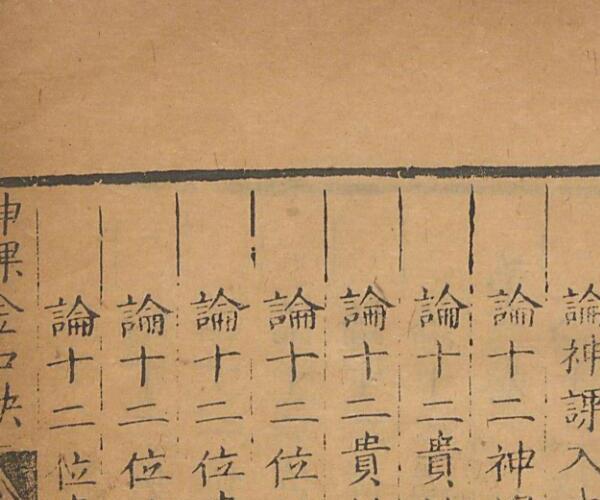 論神課入
論十二神
論十二貴
論十二貴
論十二位
論十二位
論十二位
論十二位
神課金口訣